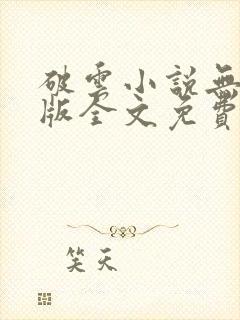 破雲小說無
版全文免費
笑天